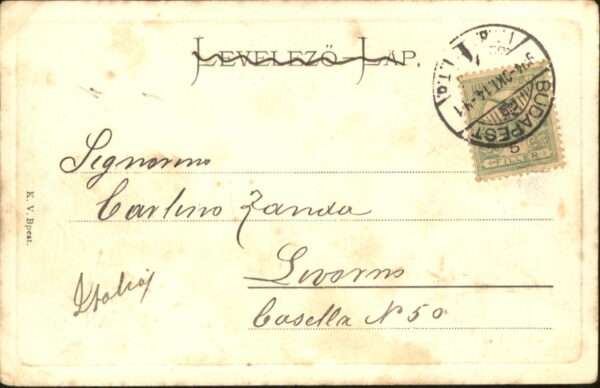 LEVELEZŐ-LAP.
BUDAPEST
5
FILLER
Signorino
Carlino Zanda
Livorno
Casella N 50
Italia
K. V. Bpest.